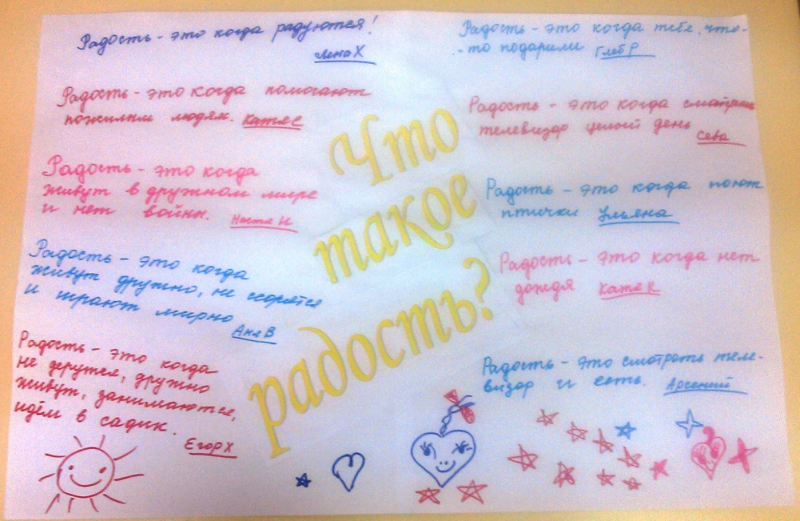 Радость - это когда радуются!
Лена Х
Радость - это когда помогают
пожилым людям. Катя С
Радость - это когда
живут в дружном мире
и нет войны. Настя И
Радость - это когда
живут дружно, не ссорятся
и играют мирно
Аня В
Радость - это когда
не дерутся, дружно
живут, занимаются,
идём в садик.
Егор Х
Что
такое
радость?
Радость - это когда тебе что-
-то подарили Глеб Р
Радость - это когда смотришь
телевизор целый день
Сева
Радость - это когда поют
птички Ульяна
Радость - это когда нет
дождя Катя К
Радость - это смотреть теле-
визор и есть. Арсений